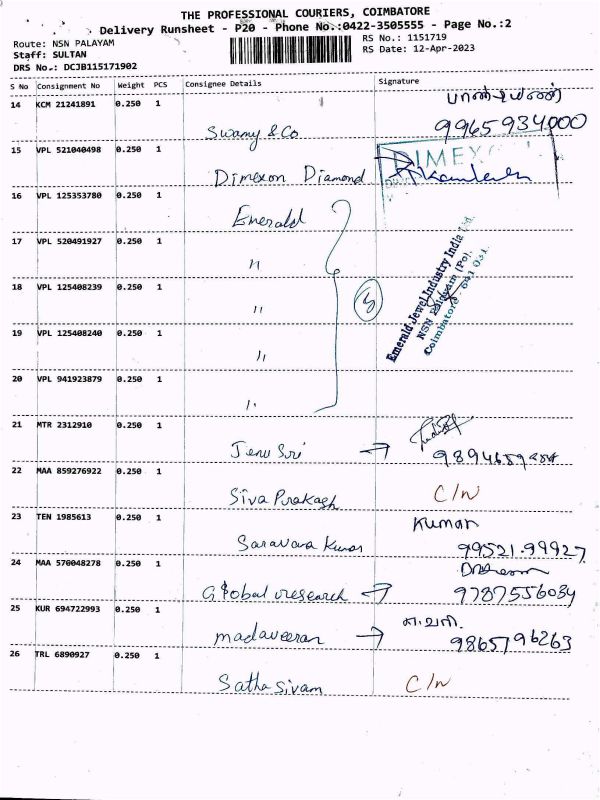 THE PROFESSIONAL COURIERS, COIMBATORE
Delivery Runsheet - P20 - Phone No.:0422-3505555 - Page No.:2
Route: NSN PALAYAM
RS No.: 1151719
Staff: SULTAN
RS Date: 12-Apr-2023
DRS No.: DCJB115171902
S No Consignment No Weight PCS Consignee Details Signature
14 KCM 21241891 0.250 1
Swamy & Co
9965934000
15 VPL 521040498 0.250 1
Dimexon Diamond
DIMEXO
16 VPL 125353780 0.250 1
Emerald
17 VPL 520491927 0.250 1
"
18 VPL 125408239 0.250 1
"
5
Emerald Jewel Industry India Ltd.
NSN Palayam (Po),
Coimbatore - 641 031.
19 VPL 125408240 0.250 1
"
20 VPL 941923879 0.250 1
"
21 MTR 2312910 0.250 1
Jenu Sri →
22 MAA 859276922 0.250 1
Siva Prakash C/N
23 TEN 1985613 0.250 1
Kumar
Saravana Kumar 99521.99927
24 MAA 570048278 0.250 1
Global research → 9787556034
25 KUR 694722993 0.250 1
madaveeran → 9865796263
26 TRL 6890927 0.250 1
Satha Sivam C/N